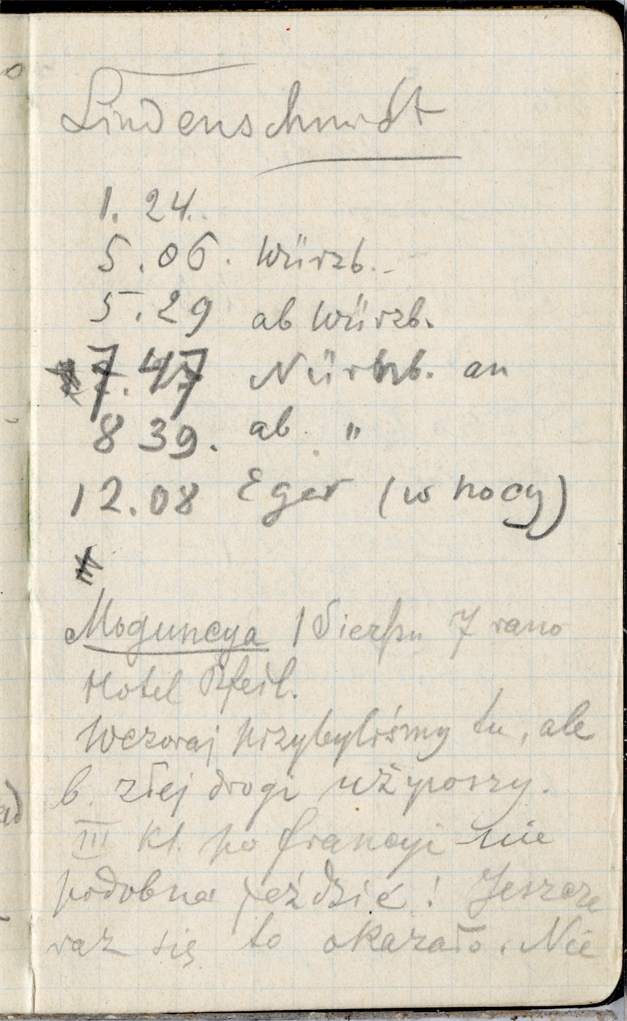 Lindenschmidt
1. 24.
5.06. Würzb.
5.29 ab Würzb.
7.47 Nürnb. an
8 39. ab. "
12.08 Eger (w nocy)
Moguncya 1 Sierpn 7 rano
Hotel Pfeil.
Wczoraj przybyliśmy tu, ale
b. złej drogi używszy.
III kl. po francyi nie
podobna jeździć! Jeszcze
raz się to okazało. Nie